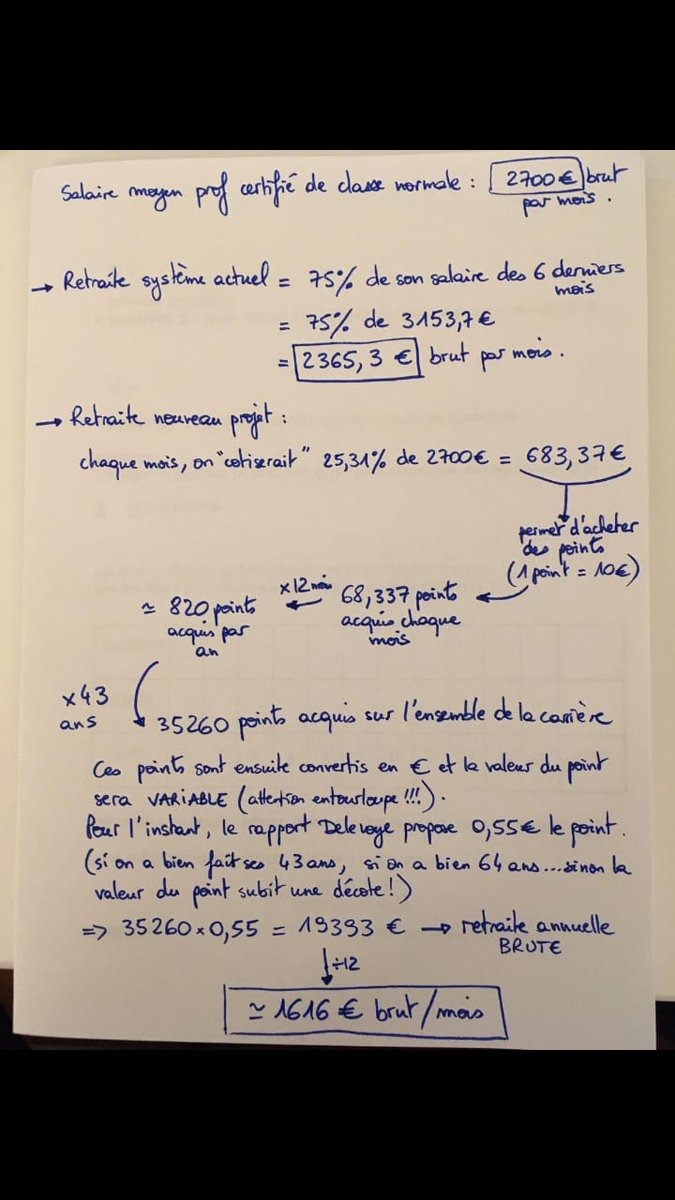 Salaire moyen prof certifié de classe normale : 2700 € brut
par mois.
→ Retraite système actuel = 75% de son salaire des 6 derniers
mois
= 75% de 3153,7 €
= 2365,3 € brut par mois.
→ Retraite nouveau projet :
chaque mois, on "cotiserait" 25,31% de 2700€ = 683,37€
permet d'acheter
des points
(1 point = 10€)
≃ 820 points
acquis par
an
x12 mois
68,337 points
acquis chaque
mois
x43
ans
35260 points acquis sur l'ensemble de la carrière
Ces points sont ensuite convertis en € et la valeur du point
sera VARIABLE (attention entourloupe !!!).
Pour l'instant, le rapport Delevoye propose 0,55€ le point.
(si on a bien fait ses 43 ans, si on a bien 64 ans... sinon la
valeur du point subit une décote !)
=> 35260 x 0,55 = 19393 € → retraite annuelle
BRUTE
÷12
≃ 1616 € brut/mois